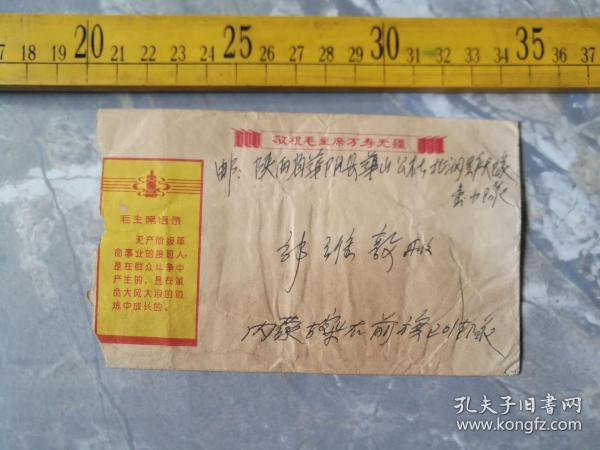 17 18 19 20 21 22 23 24 25 26 27 28 29 30 31 32 33 34 35 36 37
敬祝毛主席万寿无疆
邮：陕西省华阴县华山公社
毛主席语录
无产阶级革
命事业的接班人，
是在群众斗争中
产生的，是在革
命大风大浪的锻
炼中成长的。
内蒙 前旗 201
孔夫子旧书网
www.kongfz.com